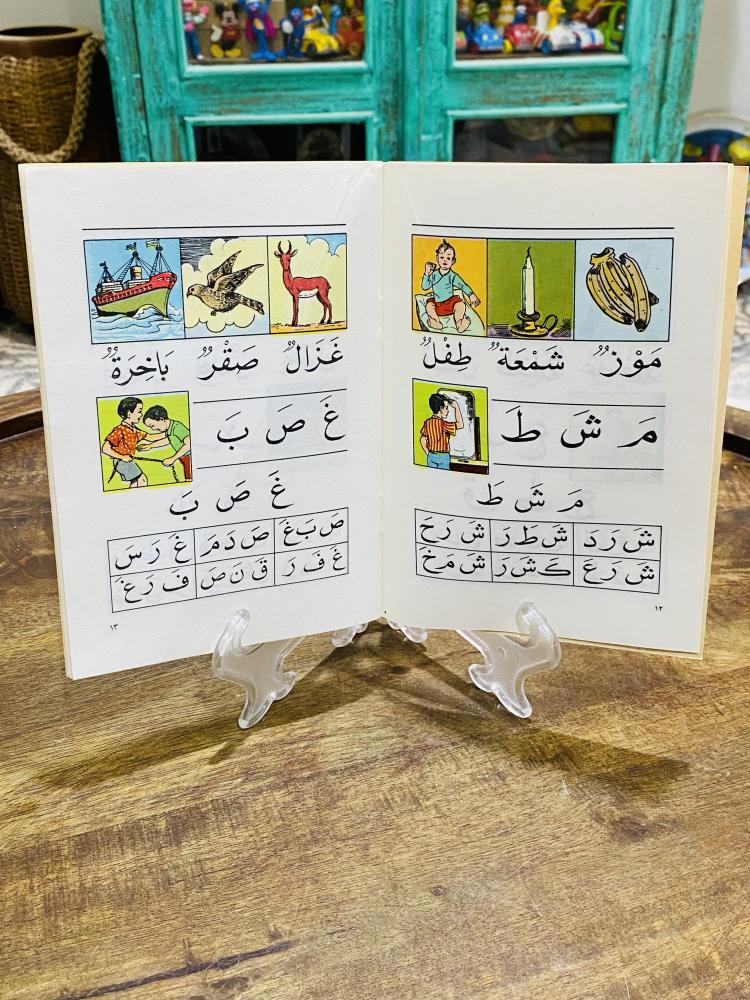 مَوْزٌ شَمْعَةٌ طِفْلٌ
مَ شَ طَ
مَ شَ طَ
شَ رَ دَ شَ طَ رَ شَ رَ حَ
شَ رَ عَ كَ شَ رَ شَ مَ خَ
١٢
غَزَالٌ صَقْرٌ بَاخِرَةٌ
غَ صَ بَ
غَ صَ بَ
صَ بَ غَ صَ دَ مَ غَ رَ سَ
غَ فَ رَ قَ نَ صَ فَ رَ غَ
١٣